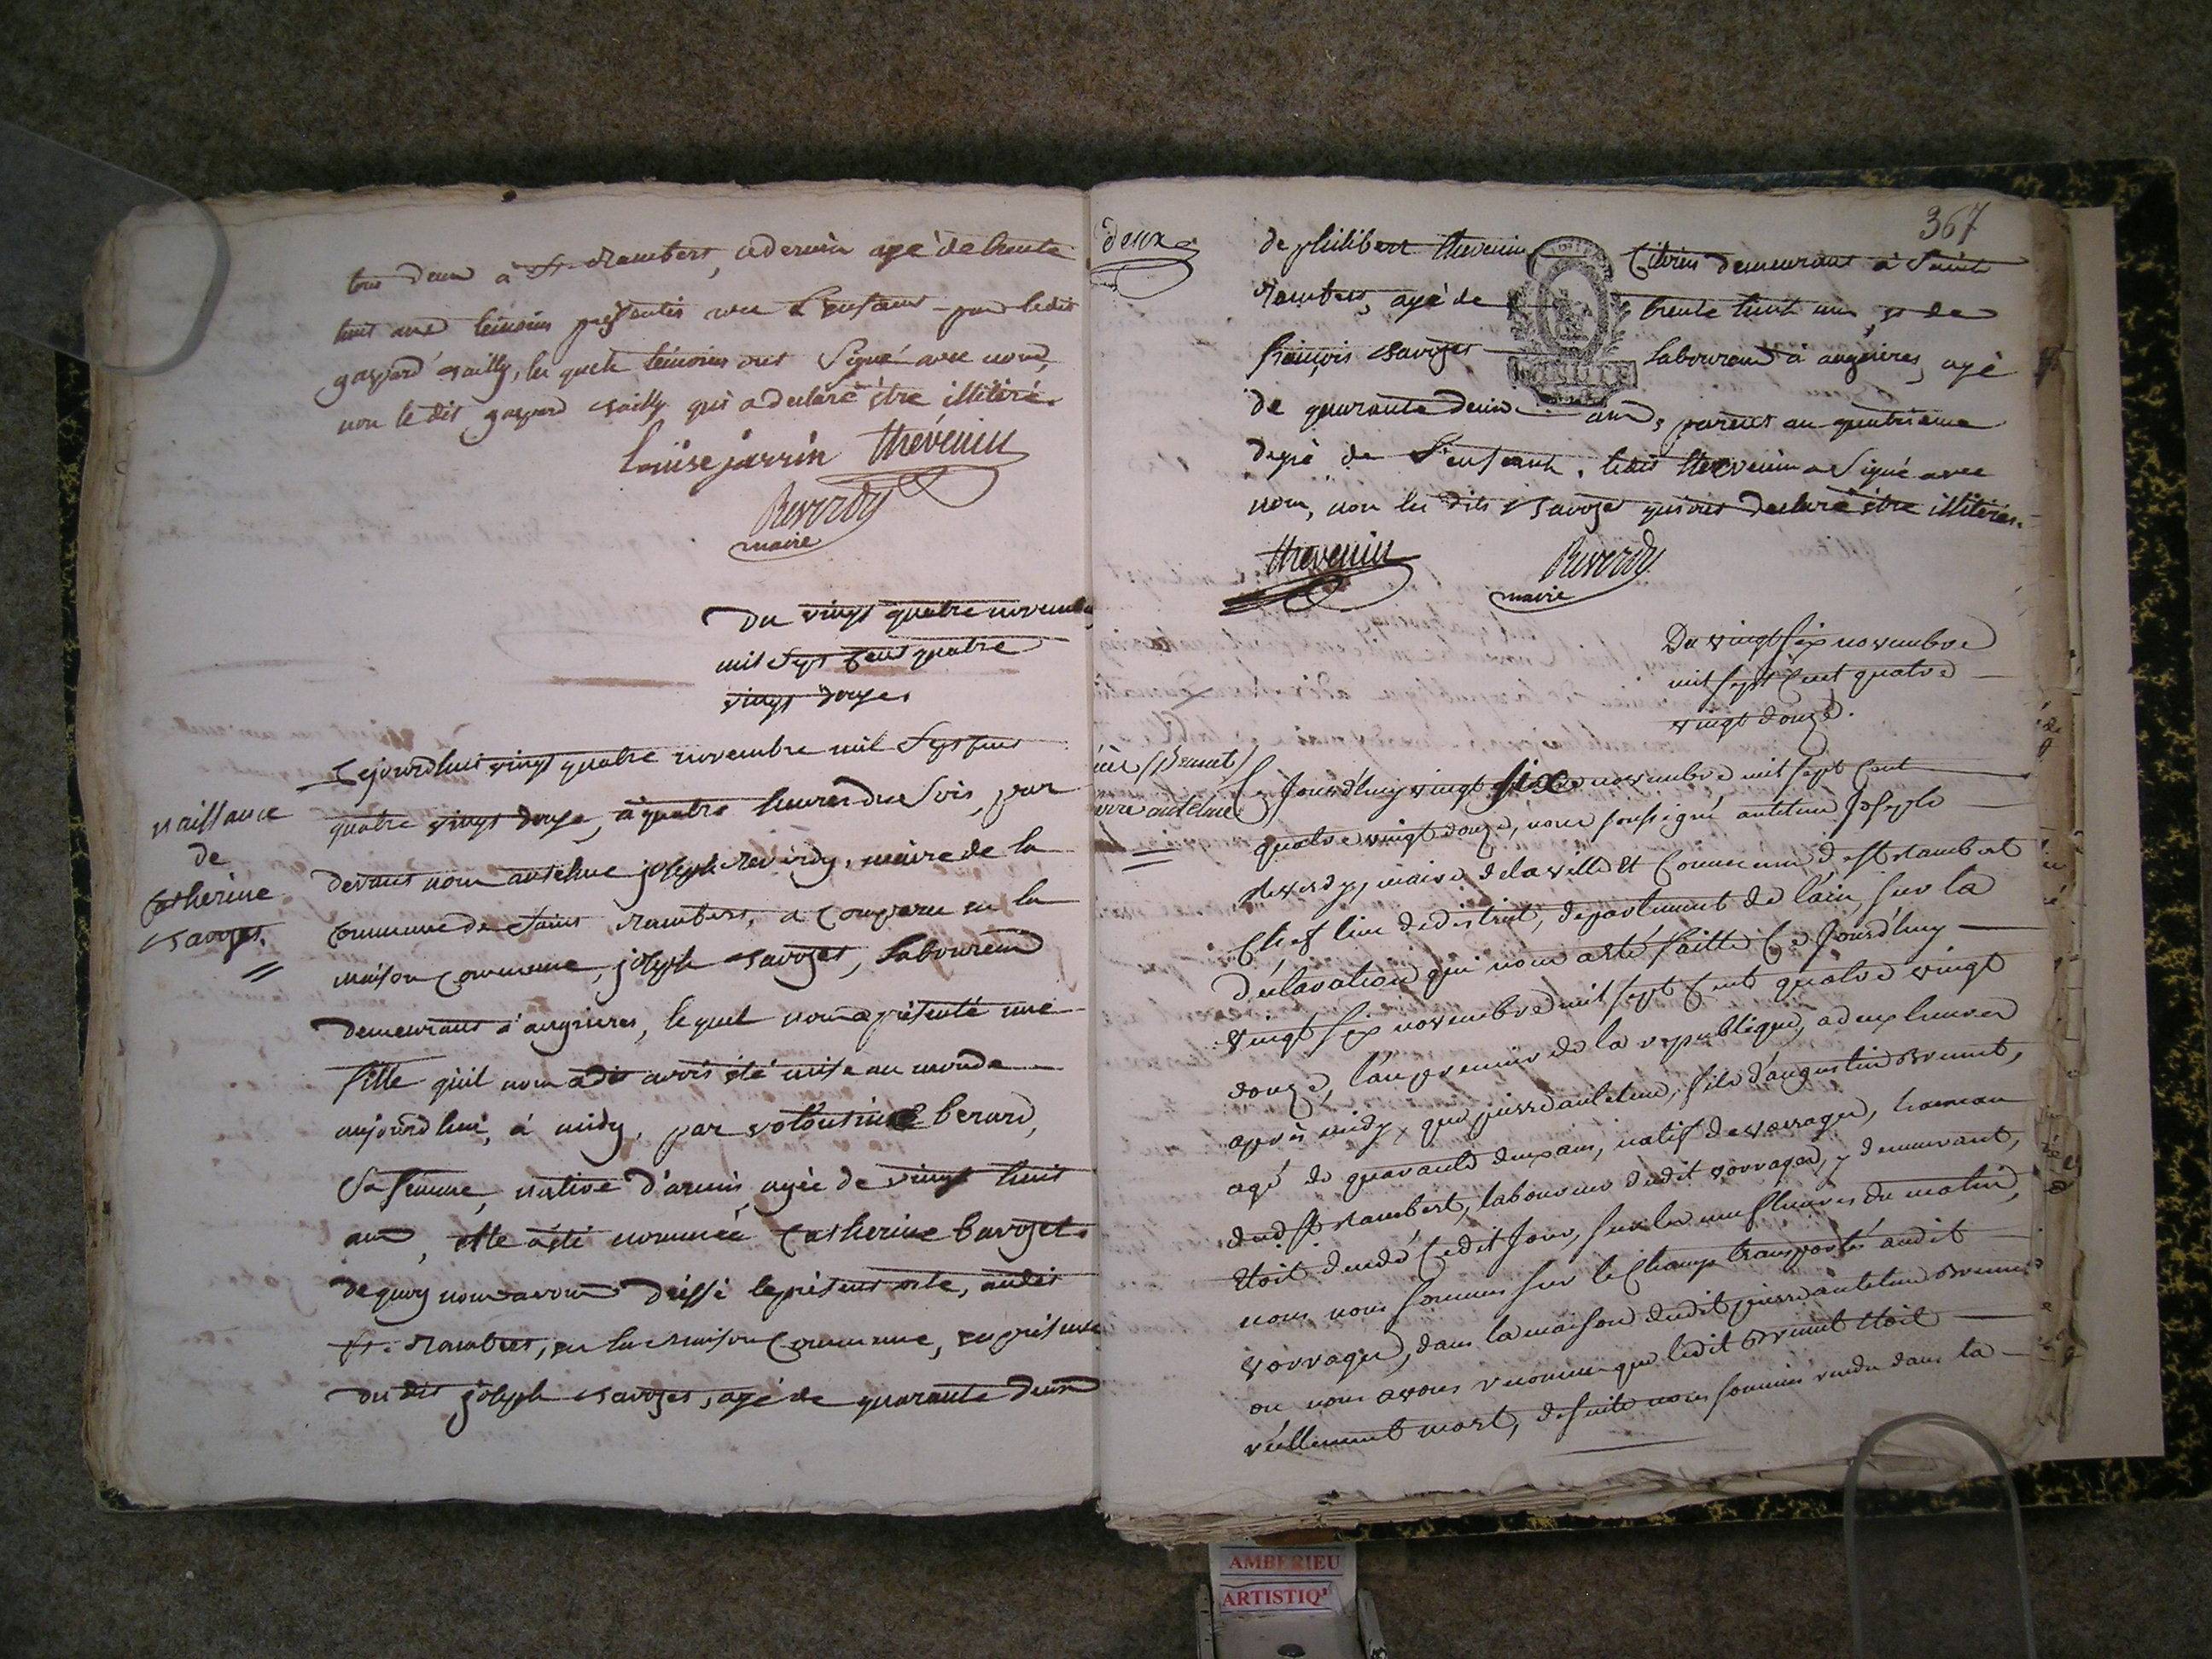 tous deux à St. Rambert, ce dernier agé de trente
huit ans témoins présentés avec l'enfant par ledit
gaspard vailly, les quels témoins ont signé avec nous,
non le dit gaspard vailly qui a declaré être illitéré.
Louise jarrin thévenin
Reverdy
maire
Du vingt quatre novembre
mil sept cent quatre
vingt douze.
naissance
de
Catherine
Savoget.
Cejourdhui vingt quatre novembre mil sept cent
quatre vingt douze, à quatre heures du soir, par
devant nous antelme joseph Reverdy, maire de la
commune de Saint Rambert, a comparu en la
maison commune, joseph Savoget, laboureur
demeurant à angrieres, lequel nous a présenté une
fille qu'il nous a dit avoir été mise au monde
aujourdhui, à midy, par berard,
sa femme, native d'arein, agée de vingt huit
ans, elle a été nommée Catherine Savoget.
de quoy nous avons dressé le présent acte, audit
St. Rambert, en la maison commune, en présence
du dit joseph Savoget, agé de quarante deux
367
deux
de philibert thevenin Citoien demeurant à Saint
Rambert, agé de trente huit ans, et de
françois Savoget laboureur à angrieres, agé
de quarante deux ans, parents au quatrieme
degré de l'enfant. ledit thevenin a signé avec
nous, non les dits Savoget qui ont declaré être illitérés.
thevenin Reverdy
maire
Du vingt six novembre
mil sept cent quatre
vingt douze.
(Brunet)
antelme
Ce Jourd'huy vingt six novembre mil sept cent
quatre vingt douze, nous soussigné antelme Joseph
Reverdy, maire de la ville et commune de St Rambert
Chef lieu de district, departement de l'ain, sur la
declaration qui nous a été faitte ce Jourd'huy
vingt six novembre mil sept cent quatre vingt
douze, l'an premier de la republique, a deux heures
après midy, que pierre antelme, fils d'augustin Brunet,
agé de quarante deux ans, natif de vorrages, hameau
dudt St Rambert, laboureur dudit vorrages, y demeurant,
étoit decedé cedit Jour, sur les heures du matin,
nous nous sommes sur le champ transportés audit
vorrages, dans la maison dudit pierre antelme Brunet
ou nous avons reconnu que ledit Brunet étoit
réellement mort, de suite nous sommes rendu dans la
AMBERIEU
ARTISTIQ'